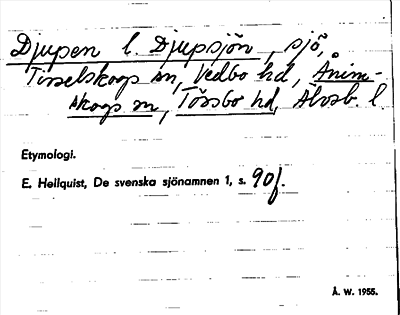 Djupen l. Djupsjön, sjö,
Tisselskogs sn, Vedbo hd, Ånim-
skogs sn, Tössbo hd, Älvsb. l.
Etymologi.
E. Hellquist, De svenska sjönamnen 1, s. 90f.
Å. W. 1955.